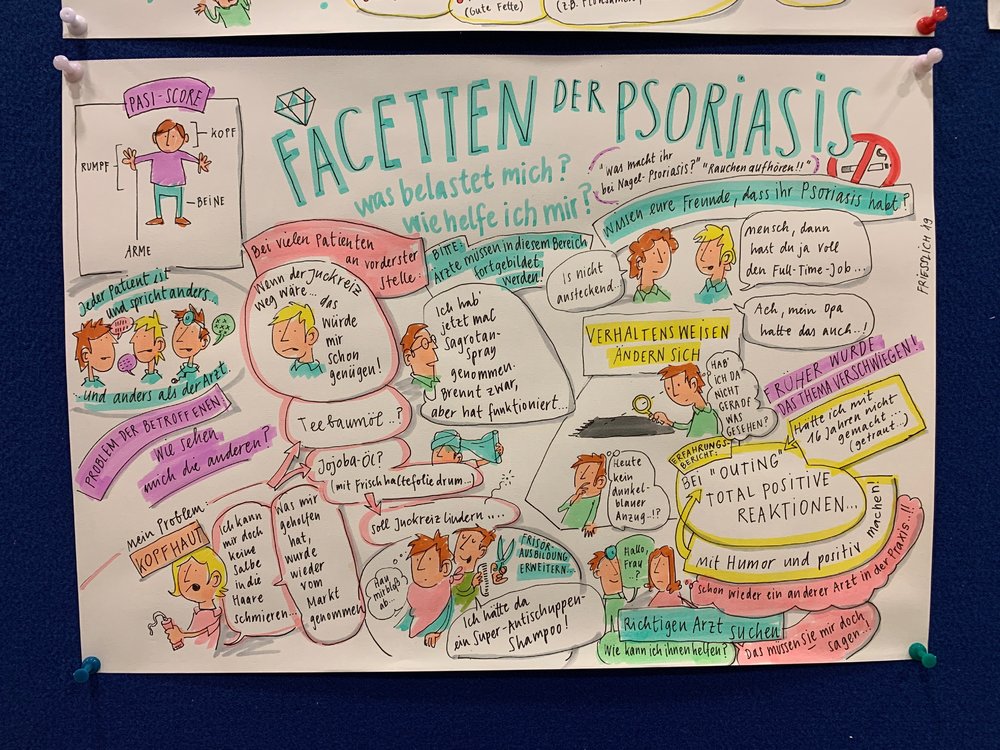 (Gute Fette)
PASI-SCORE
KOPF
RUMPF
BEINE
ARME
FACETTEN DER PSORIASIS
was belastet mich?
wie helfe ich mir?
"was macht ihr
bei Nagel-Psoriasis?" "Rauchen aufhören!!"
Wissen eure Freunde, dass ihr Psoriasis habt?
Is nicht
ansteckend...
mensch, dann
hast du ja voll
den Full-Time-Job...
Ach, mein Opa
hatte das auch..!
FRIESSLICH 19
Jeder Patient ist
und spricht anders...
...und anders als der Arzt
Bei vielen Patienten
an vorderster
Stelle:
Wenn der Juckreiz
weg wäre... das
würde
mir
schon
genügen!
BITTE:
Ärzte müssen in diesem Bereich
fortgebildet
werden!
Ich hab'
jetzt mal
Sagrotan-
Spray
genommen.
Brennt zwar,
aber hat funktioniert...
VERHALTENSWEISEN
ÄNDERN SICH
HAB
ICH DA
NICHT
GERADE
WAS
GESEHEN?
FRÜHER WURDE
DAS THEMA VERSCHWIEGEN!
Hätte ich mit
16 Jahren nicht
gemacht...
(getraut...)
PROBLEM DER BETROFFENEN:
wie sehen
mich die anderen?
Teebaumöl..?
Jojoba-Öl?
(mit Frischhaltefolie drum...)
soll Juckreiz lindern....
Heute
kein
dunkel-
blauer
Anzug..!?
ERFAHRUNGS-
BERICHT:
BEI "OUTING"
TOTAL POSITIVE
REAKTIONEN...
mit Humor und positiv machen!
Mein Problem:
KOPFHAUT
Ich kann
mir doch
keine
Salbe
in die
Haare
schmieren...
Was mir
geholfen
hat,
wurde
wieder
vom
Markt
genommen
Hau
mir bloß
ab...
FRISÖR-
AUSBILDUNG
ERWEITERN...
Ich hätte da
ein Super-Antischuppen-
Shampoo!
Hallo,
Frau
..?
Schon wieder ein anderer Arzt in der Praxis..!!
Richtigen Arzt suchen
Wie kann ich ihnen helfen?
Das müssen sie mir doch
sagen...